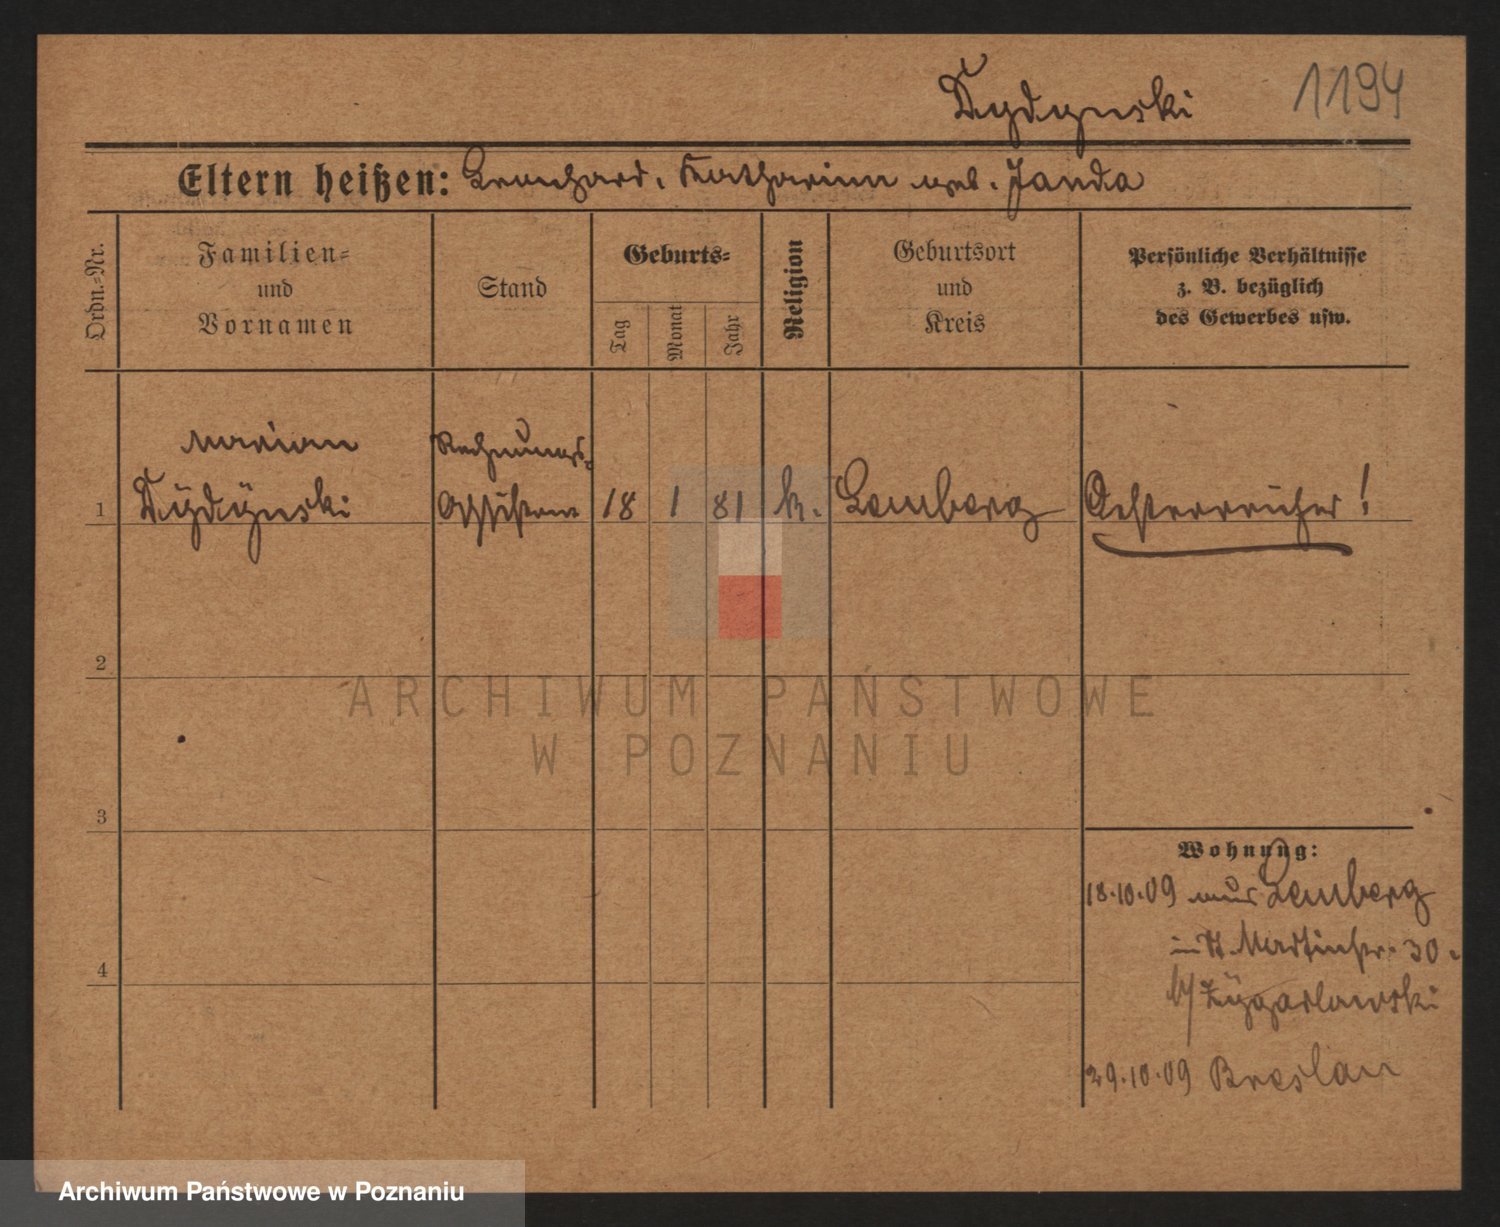 Dydynski
1194
Eltern heißen: Leonhard, Katharina geb. Janda
Ordn.-Nr.
Familien-
und
Vornamen
Stand
Geburts-
Tag
Monat
Jahr
Religion
Geburtsort
und
Kreis
Persönliche Verhältnisse
z. B. bezüglich
des Gewerbes usw.
Marian
Rechnungs-
1 Dydynski Assistent 18 1 81 k. Lemberg Oesterreicher!
2
3
4
Wohnung:
18.10.09 aus Lemberg
St. Martinstr. 30.
b/
29.10.09 Breslau
ARCHIWUM PAŃSTWOWE
W POZNANIU
Archiwum Państwowe w Poznaniu